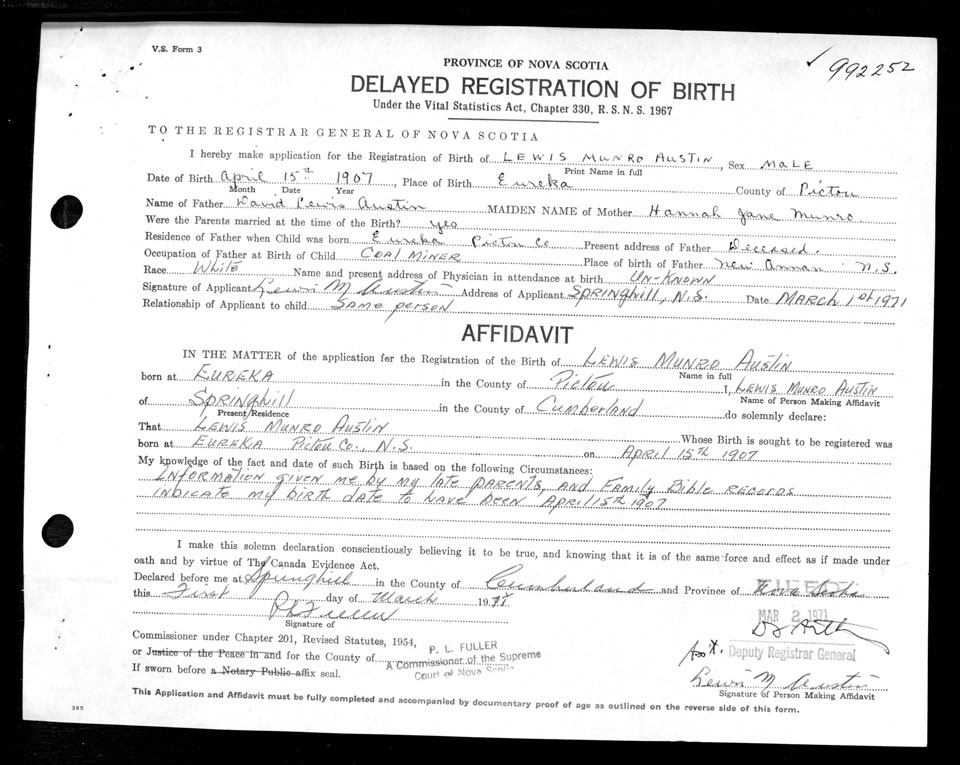 V.S. Form 3
✓ 992252
PROVINCE OF NOVA SCOTIA
DELAYED REGISTRATION OF BIRTH
Under the Vital Statistics Act, Chapter 330, R.S.N.S. 1967
TO THE REGISTRAR GENERAL OF NOVA SCOTIA
I hereby make application for the Registration of Birth of LEWIS MUNRO AUSTIN, Sex MALE
Print Name in full
Date of Birth April 15th 1907, Place of Birth Eureka County of Pictou
Month Date Year
Name of Father David Lewis Austin MAIDEN NAME of Mother Hannah Jane Munro
Were the Parents married at the time of the Birth? yes
Residence of Father when Child was born Eureka Pictou Co Present address of Father Deceased.
Occupation of Father at Birth of Child COAL MINER Place of birth of Father New Annan N.S.
Race White Name and present address of Physician in attendance at birth UN-KNOWN
Signature of Applicant Lewis M Austin Address of Applicant SPRINGHILL, N.S. Date MARCH 1st 1971
Relationship of Applicant to child SAME PERSON
AFFIDAVIT
IN THE MATTER of the application for the Registration of the Birth of LEWIS MUNRO AUSTIN
Name in full
born at EUREKA in the County of Pictou I, LEWIS MUNRO AUSTIN
Name of Person Making Affidavit
of SPRINGHILL in the County of Cumberland do solemnly declare:
Present Residence
That LEWIS MUNRO AUSTIN Whose Birth is sought to be registered was
born at EUREKA PICTOU CO., N.S. on APRIL 15TH 1907
My knowledge of the fact and date of such Birth is based on the following Circumstances:
INFORMATION given me by my late PARENTS, AND FAMILY Bible RECORDS
INDICATE my BIRTH DATE TO HAVE BEEN APRIL 15TH 1907
I make this solemn declaration conscientiously believing it to be true, and knowing that it is of the same force and effect as if made under
oath and by virtue of The Canada Evidence Act.
Declared before me at Springhill in the County of Cumberland and Province of Nova Scotia
this First day of March 1971
FILED
MAR 2 1971
P L Fuller
Signature of
Deputy Registrar General
Commissioner under Chapter 201, Revised Statutes, 1954,
or Justice of the Peace in and for the County of
P. L. FULLER
A Commissioner of the Supreme
Court of Nova Scotia
If sworn before a Notary Public affix seal.
Lewis M Austin
Signature of Person Making Affidavit
This Application and Affidavit must be fully completed and accompanied by documentary proof of age as outlined on the reverse side of this form.